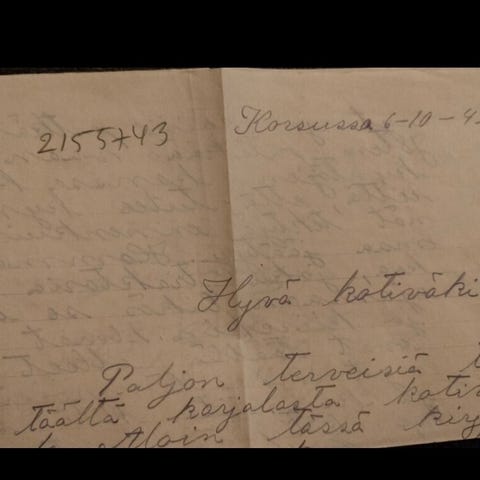 2155743
Korsussa 6-10-4
Hyvä kotiväki
Paljon terveisiä
täältä karjalasta
Aloin tässä